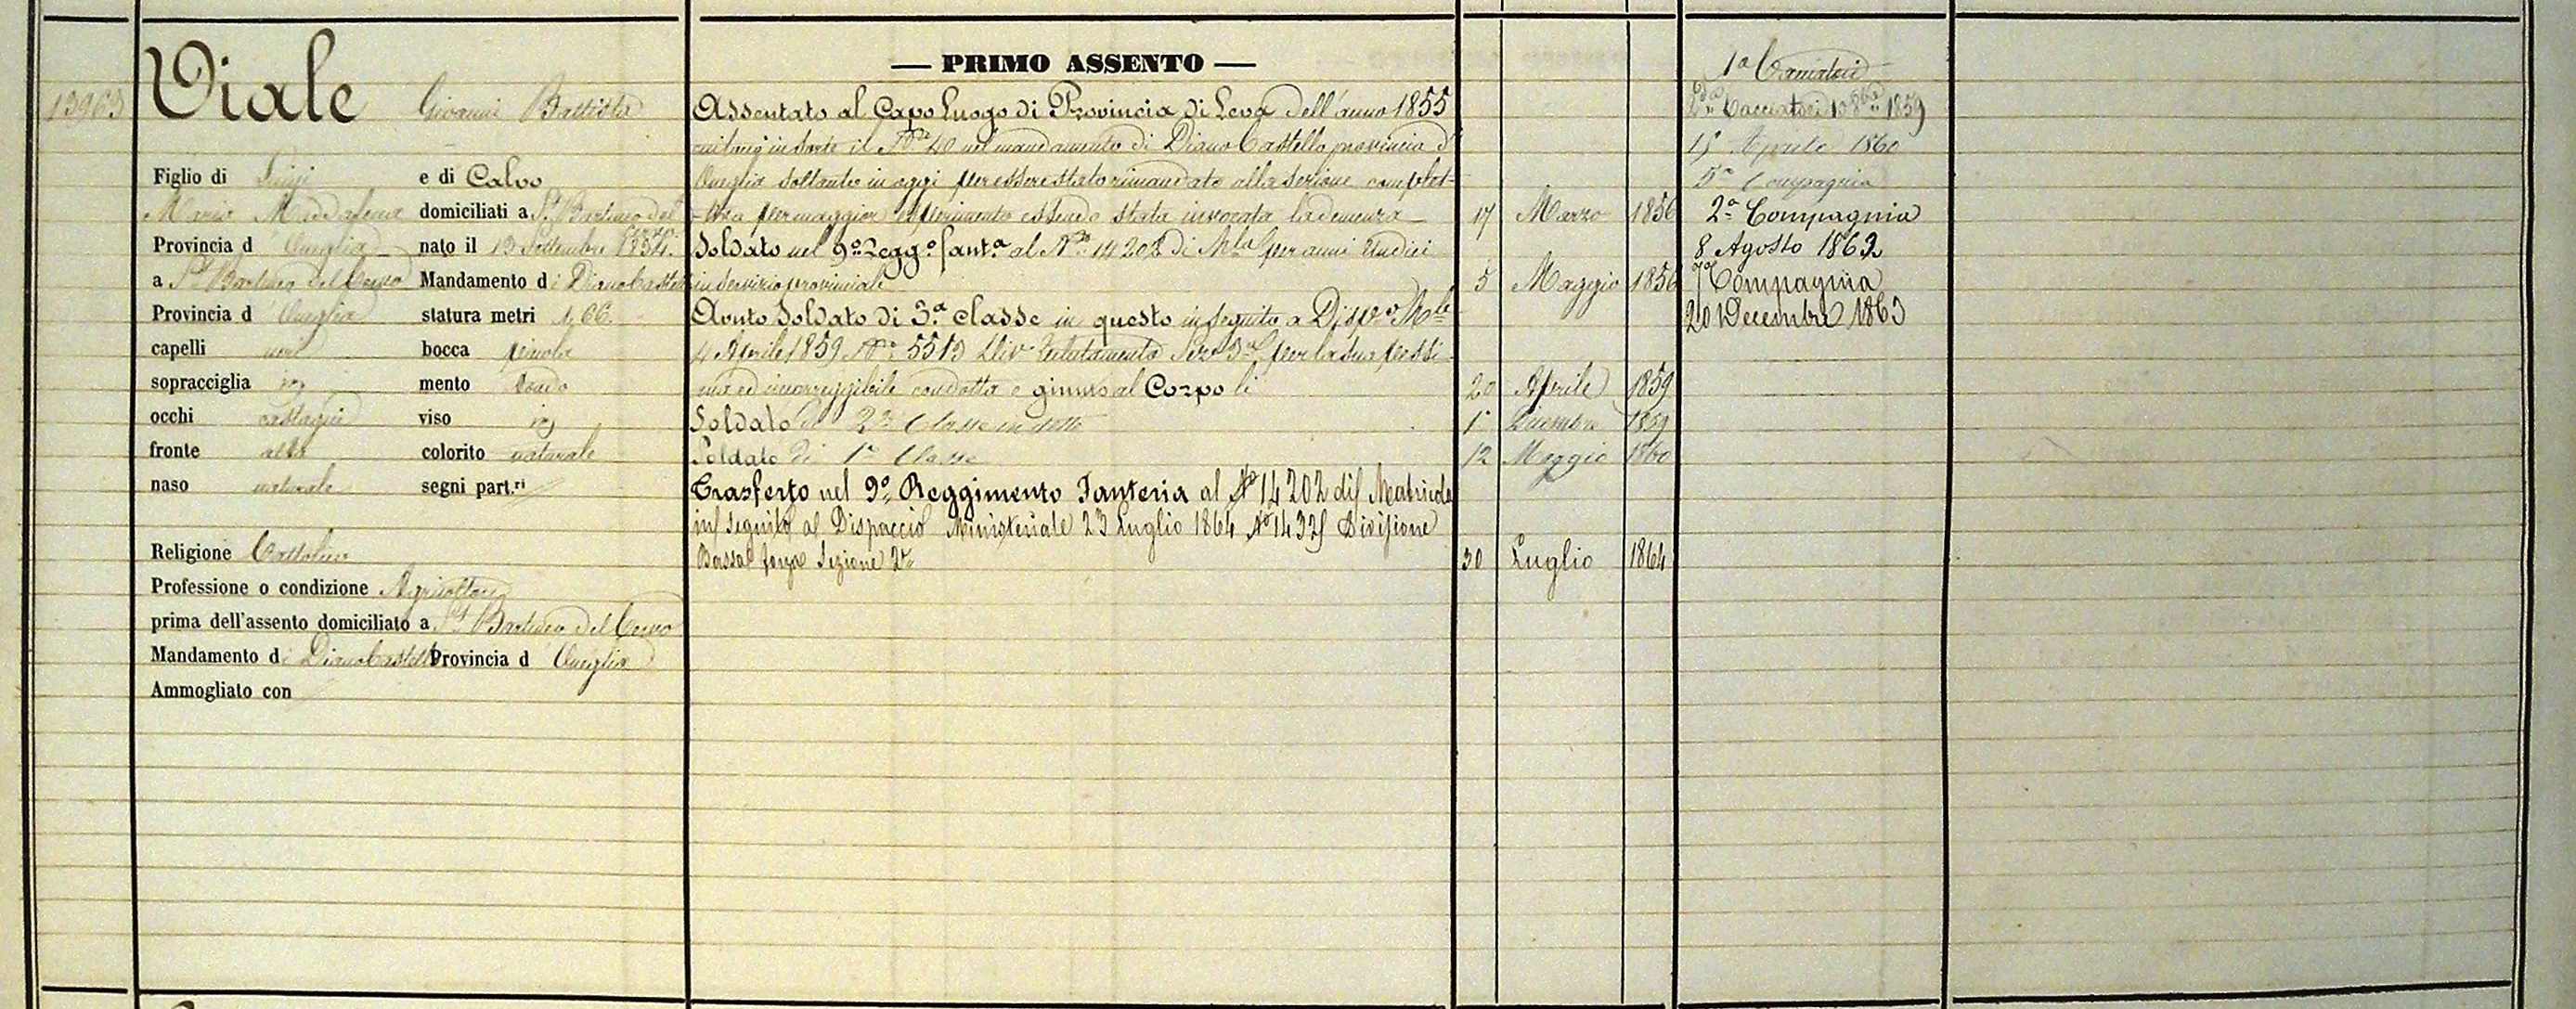 13963
Viale Giovanni Battista
Figlio di Luigi e di Calvo
Maria Maddalena domiciliati a S.t Bartmeo del Cervo
Provincia d Oneglia nato il 13 Settembre 1834.
a S.t Bartmeo del Cervo Mandamento di Diano Castello
Provincia d Oneglia statura metri 1,66.
capelli neri bocca piccola
sopracciglia mento tondo
occhi castagni viso
fronte alta colorito naturale
naso naturale segni part.ri
Religione Cattolica
Professione o condizione Agricoltore
prima dell'assento domiciliato a S.t Bartmeo del Cervo
Mandamento di Diano Castello Provincia d Oneglia
Ammogliato con
— PRIMO ASSENTO —
Assentato al Capo Luogo di Provincia di Leva dell'anno 1855
in sorte il N.o 40 nel mandamento di Diano Castello provincia d'
Oneglia soltanto in oggi per essere stato rimandato alla sezione complet-
per maggior esperimento essendo stata invocata la demenza 17 Marzo 1856
Soldato nel 9.o Regg.o fant.a al N.o 14202 di M.la per anni Undici
in servizio provinciale 5 Maggio 1856
Avuto Soldato di 3.a classe in questo in seguito a Disp.o M.le
4 Aprile 1859 N.o 5513 per la sua pessi-
ma ed incorreggibile condotta e giunto al Corpo li 20 Aprile 1859
Soldato di 2.a Classe in detto 1.o Dicembre 1859
Soldato di 1.a Classe 12 Maggio 1860
Trasferto nel 9.o Reggimento Fanteria al N.o 14202 di Matricola
in seguito al Dispaccio Ministeriale 23 Luglio 1864 N.o 14325 Divisione
Bassa forza Sezione 2.a 30 Luglio 1864
1a
Cacciatori 1 8bre 1859
15 Aprile 1860
5.a Compagnia
2.a Compagnia
8 Agosto 1862
7.a Compagnia
20 Decembre 1863